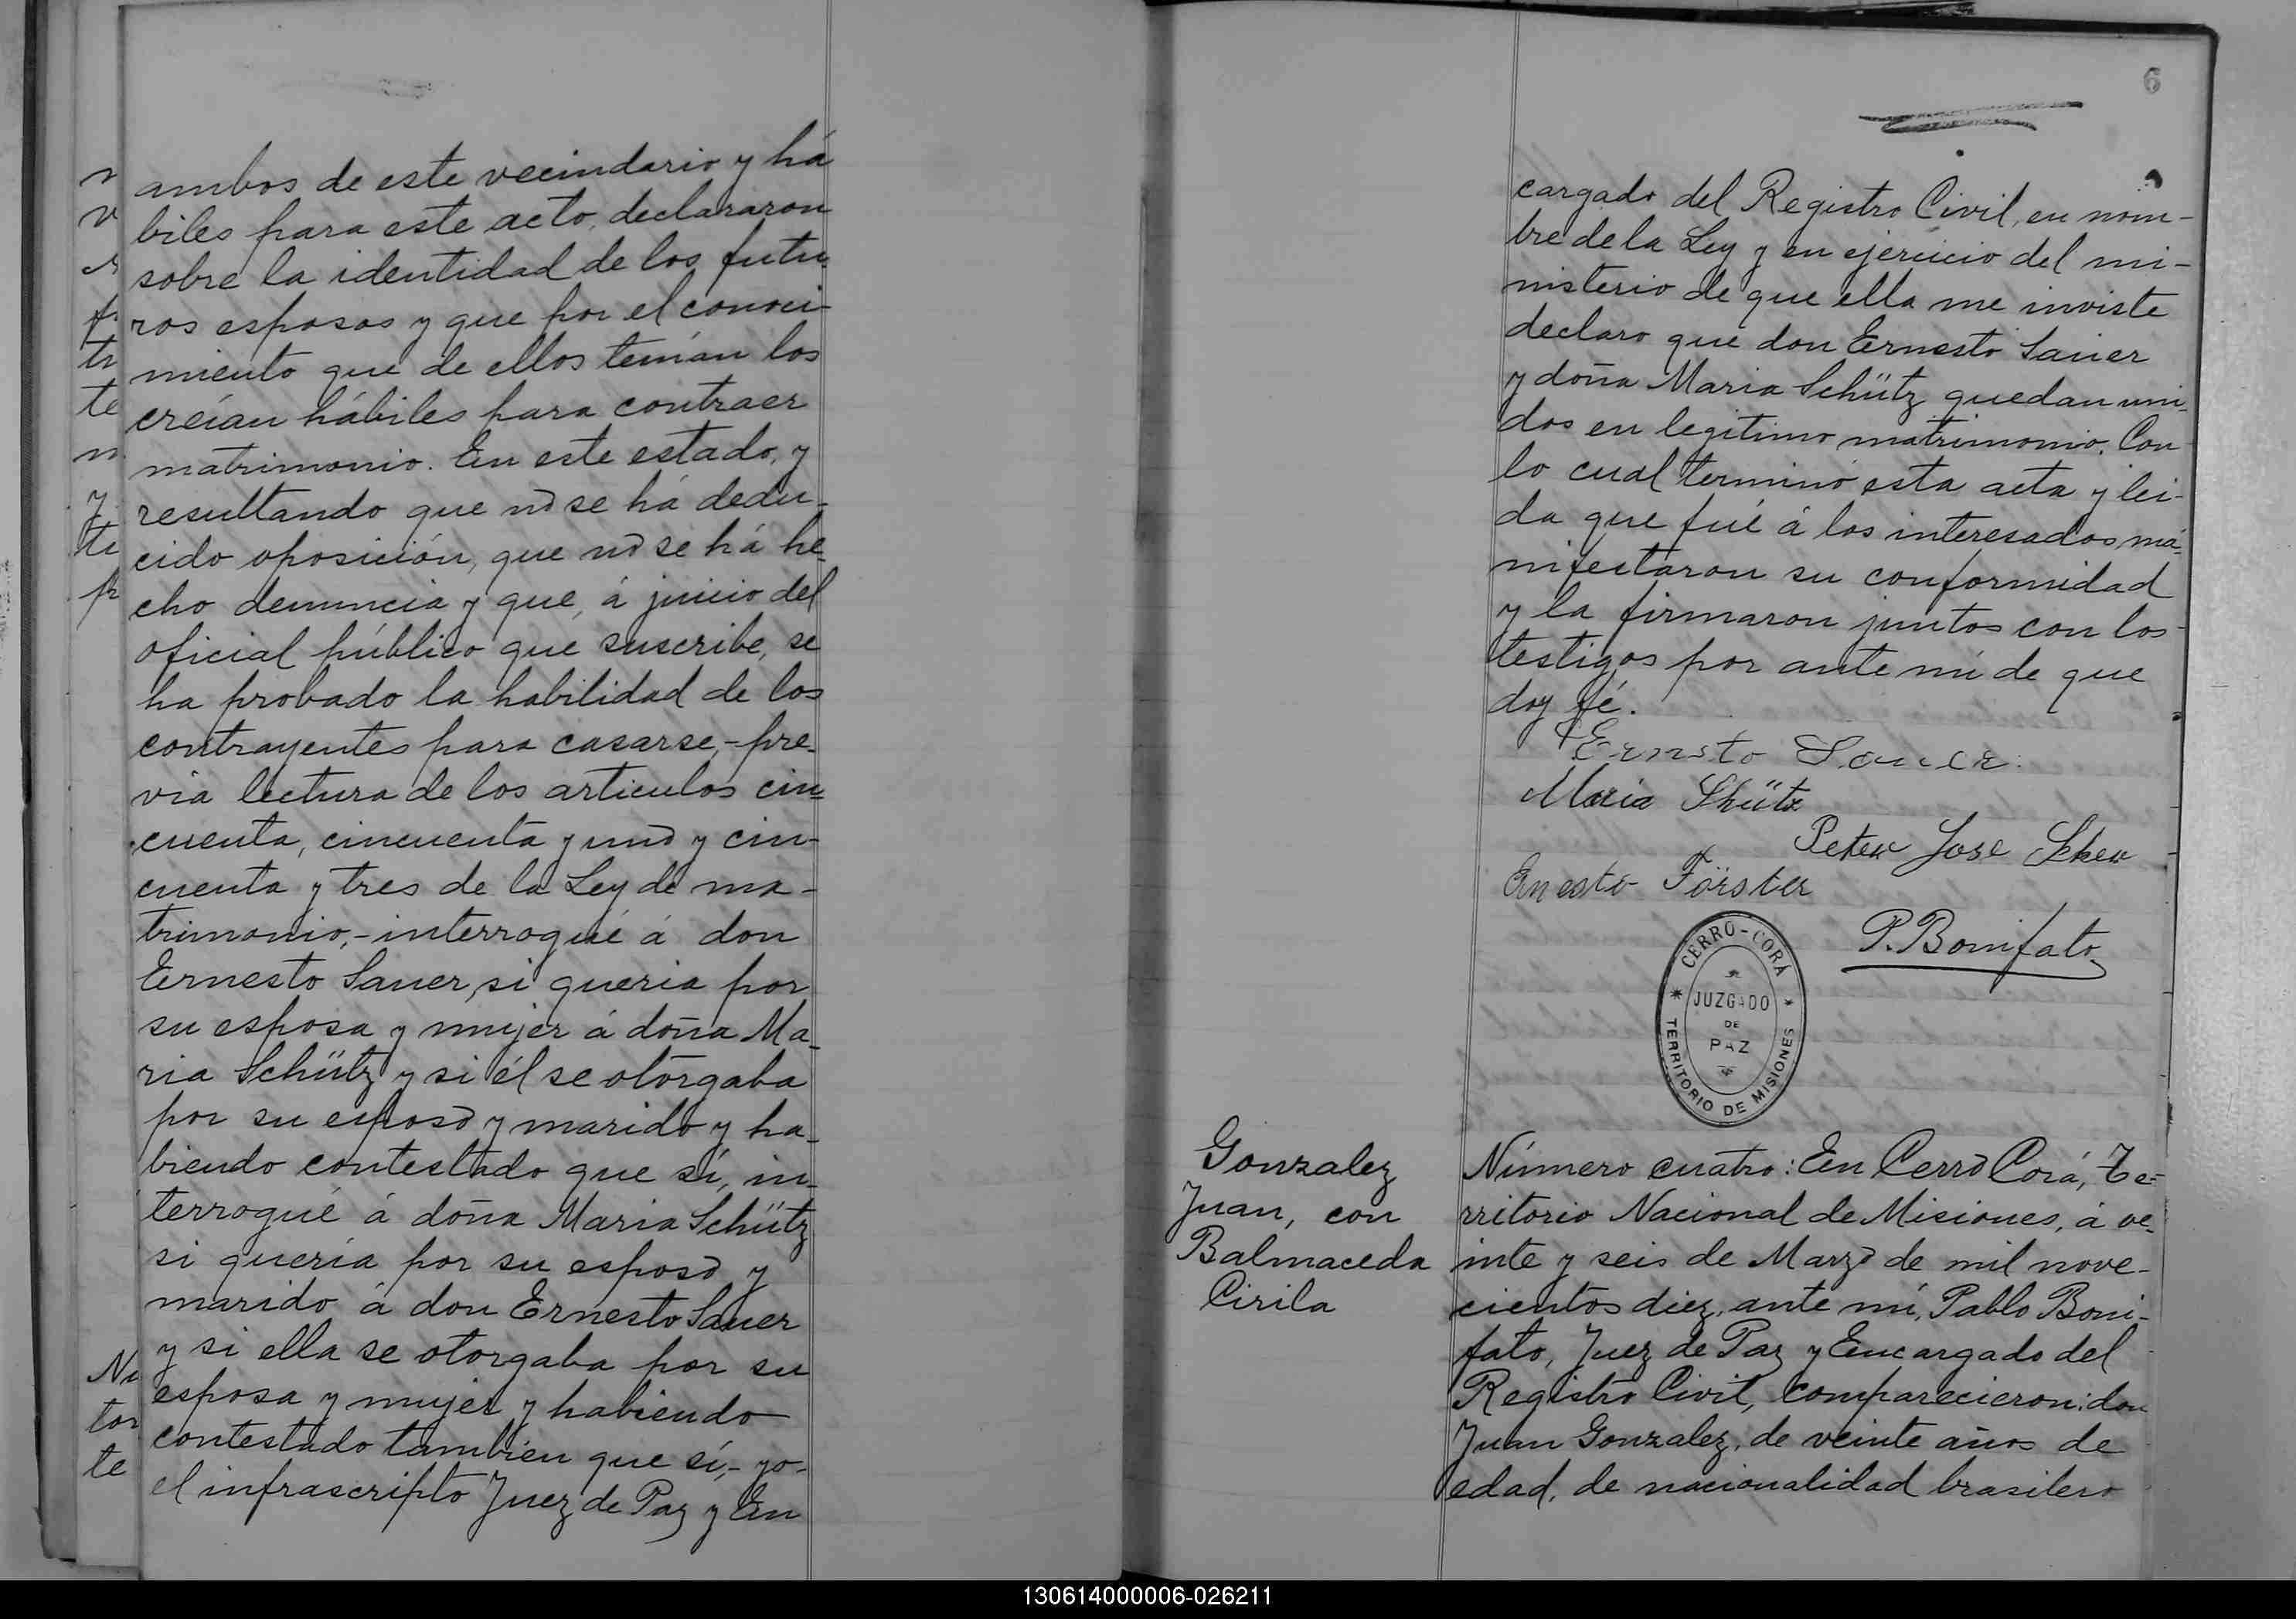 ambos de este vecindario y há
biles para este acto, declararon
sobre la identidad de los futu-
ros esposos y que por el conoci-
miento que de ellos tenían los
creían hábiles para contraer
matrimonio. En este estado, y
resultando que no se há dedu-
cido oposición, que no se há he-
cho denuncia y que, á juicio del
oficial público que suscribe, se
ha probado la habilidad de los
contrayentes para casarse,- pre-
via lectura de los articulos cin-
cuenta, cincuenta y uno y cin-
cuenta y tres de la Ley de ma-
trimonio,- interrogué á don
Ernesto Sauer, si queria por
su esposa y mujer á doña Ma-
ria Schütz y si él se otorgaba
por su esposo y marido y ha-
biendo contestado que sí, in-
terrogué á doña Maria Schütz
si quería por su esposo y
marido á don Ernesto Sauer
y si ella se otorgaba por su
esposa y mujer y habiendo
contestado tambien que sí,- yo-
el infrascripto Juez de Paz y En
6
cargado del Registro Civil, en nom-
bre de la Ley y en ejercicio del mi-
nisterio de que ella me inviste
declaro que don Ernesto Sauer
y doña Maria Schütz quedan uni-
dos en legitimo matrimonio. Con
lo cual terminó esta acta y lei-
da que fué á los interesados ma-
nifestaron su conformidad
y la firmaron juntos con los
testigos por ante mí de que
doy fé.
Ernesto Sauer.
Maria Shütz
Peter Jose
Ernesto Förster
P. Bonifato
CERRO-CORÁ
JUZGADO
DE
PAZ
TERRITORIO DE MISIONES
Gonzalez
Juan, con
Balmaceda
Cirila
Número cuatro: En Cerro Corá, Te-
rritorio Nacional de Misiones, á ve-
inte y seis de Marzo de mil nove-
cientos diez, ante mí, Pablo Boni-
fato, Juez de Paz y Encargado del
Registro Civil, comparecieron: don
Juan Gonzalez, de veinte años de
edad, de nacionalidad brasilero
130614000006-026211